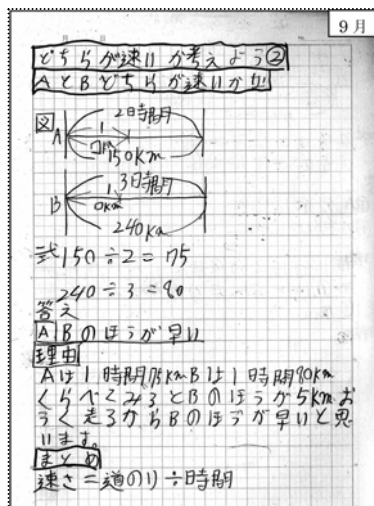 9月
どちらが速いか考えよう②
AとBどちらが速いかな
図
2時間
A
1
□km
150km
3時間
B
1
□km
240km
式150÷2=75
240÷3=80
答え
A Bのほうが早い
理由
Aは1時間75kmBは1時間80km
くらべてみるとBのほうが5kmお
うく走るからBのほうが早いと思
います。
まとめ
速さ=道のり÷時間